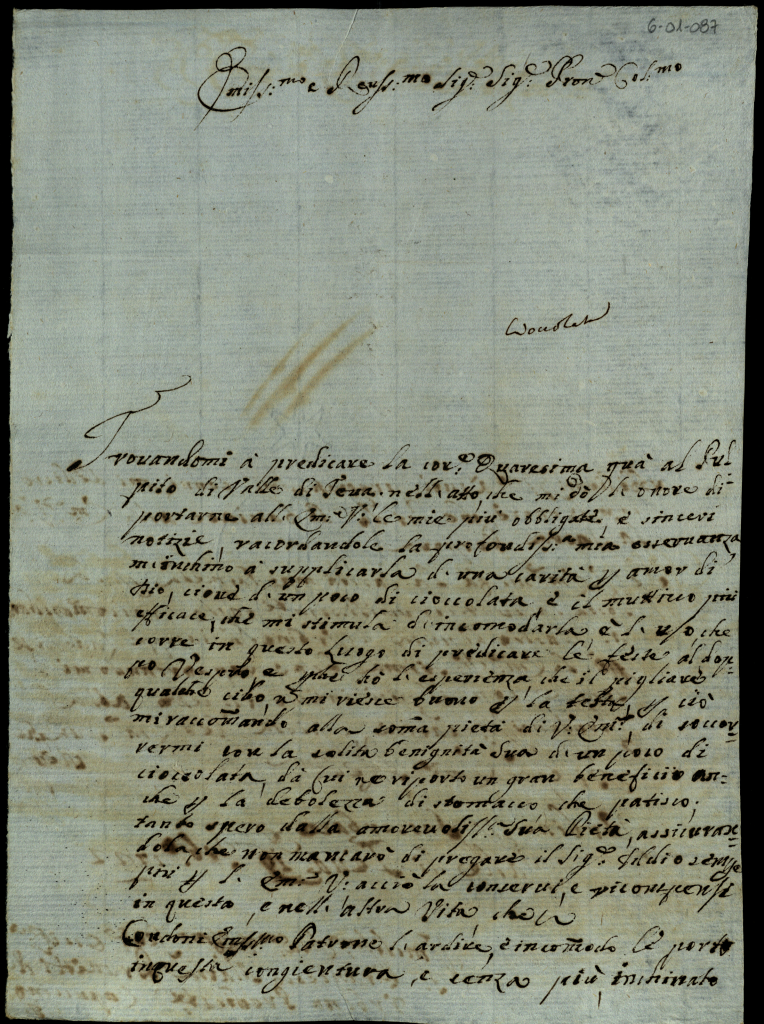 6-01-087
Emiss:mo e Reuss:mo Sig.r Sig.r Pron.e Col:mo
Trouandomi à predicare la cor.e Quaresima quà al Pul-
pito di Valle di nell'atto che mi dò l'onore di
portarne all'Em:a V: le mie più obbligate, e sinceri
notizie, racordandole la profondiss:a mia osseruanza
m'inchino à supplicarla d'una carità p amor di
Dio, cioue d'un poco di cioccolata, e il muttiuo più
efficace, che mi stimula d'incomodarla è l'uso che
corre in questo Luogo di predicare le feste al dop-
po Vespro e hò l'esperienza, che il pigliare
qualche cibo, n mi riesce buono p la testa, p ciò
mi raccomando alla soma pietà di V: Em:a, di soccor-
rermi con la solita benignità Sua d'un poco di
cioccolata, da Cui ne riporto un gran beneficio an-
che p la debolezza di stomacco che patisco;
tanto spero dalla amoreuoliss:a Sua Pietà, assicuran-
dola, che non mancarò di pregare il Sig.r Iddio sempre
più p l'Em:a V: acciò la conserui, e ricompensi
in questa, e nell'altra Vita, che
Condoni Emssmo Patrone l'ardire, e incomodo le porto
in questa congientura, e senza più inchinato